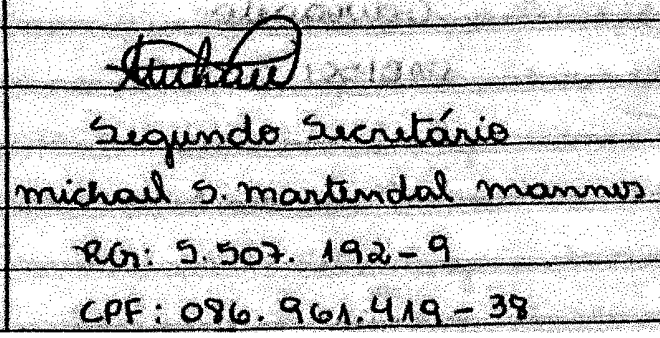 Segundo Secretário
Michael S. Martendal Mannes
RG: 5.507.192-9
CPF: 086.961.419-38